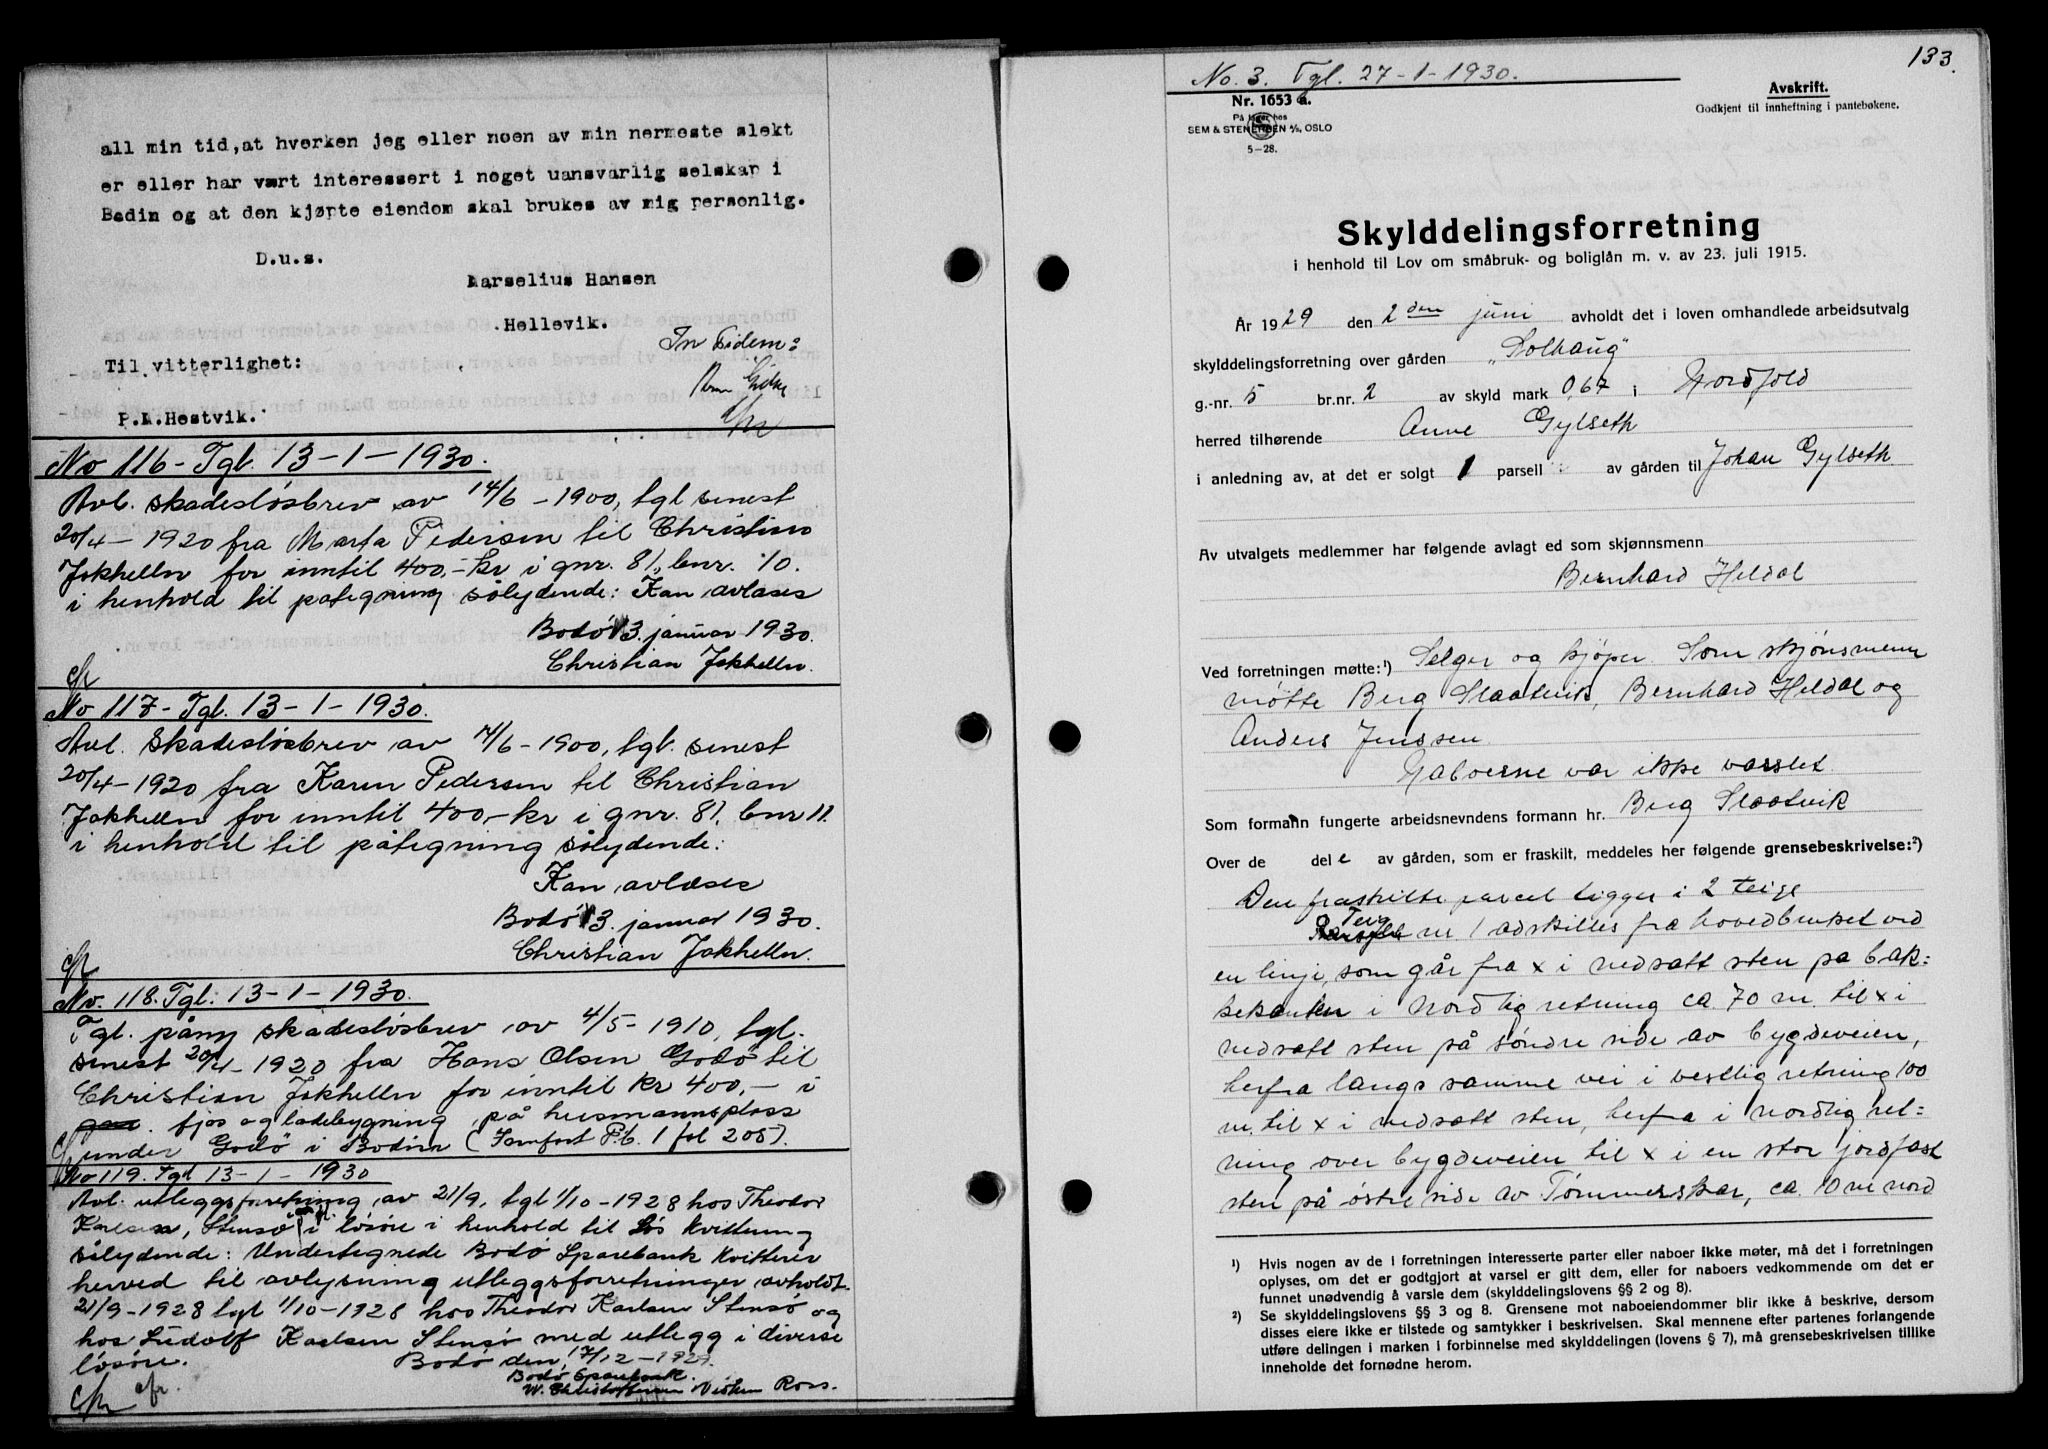 all min tid, at hverken jeg eller noen av min nermeste slekt
er eller har vært interessert i noget uansvarlig selskap i
Bodin og at den kjøpte eiendom skal brukes av mig personlig.
D.u.s.
Marselius Hansen
Hellevik.
Til vitterlighet:
P.A.Hestvik.
No 116 - Tgl. 13-1-1930.
Avl. skadesløsbrev av 14/6 - 1900, tgl. senest
20/4 - 1920 fra Marta Pedersen til Christian
Jakhelln for inntil 400,- kr i gnr. 81, bnr. 10.
i henhold til påtegning sålydende: Kan avlæses
Bodø 13. januar 1930.
Christian Jakhelln.
No 117 - Tgl. 13-1-1930.
Avl. Skadesløsbrev av 14/6 - 1900, tgl. senest
20/4 - 1920 fra Karen Pedersen til Christian
Jakhelln for inntil 400,- kr i gnr. 81, bnr 11.
i henhold til påtegning sålydende:
Kan avlæses
Bodø 13. januar 1930.
Christian Jakhelln.
No. 118. Tgl: 13-1-1930.
Tgl. påny skadesløsbrev av 4/5 - 1910, tgl.
senest 20/4 - 1920 fra Hans Olsen Godø til
Christian Jakhelln for inntil kr 400,- i
fjøs og ladebygning på husmannsplass
under Godø i Bodin (Jamført P.b. 1 fol 205).
No 119. Tgl 13-1-1930
Avl. utleggsforretning av 21/9, tgl 1/10 - 1928 hos Theodor
Karlsen, Stensø i løsøre i henhold til løs kvittering
sålydende: Undertegnede Bodø Sparebank kvitterer
herved til avlysning utleggsforretninger avholdt
21/9 - 1928 tgl 1/10 - 1928 hos Theodor Karlsen Stensø og
hos Ludolf Karlsen Stensø med utlegg i diverse
løsøre. Bodø den 17/12 - 1929.
Bodø Sparebank.
W. Christoffersen Ross.
133.
No. 3. Tgl. 27-1-1930.
Nr. 1653 a.
På lager hos
SEM & STENERSEN A/S, OSLO
5-28.
Avskrift.
Godkjent til innheftning i pantebøkene.
Skylddelingsforretning
i henhold til Lov om småbruk- og boliglån m. v. av 23. juli 1915.
År 1929 den 2den juni avholdt det i loven omhandlede arbeidsutvalg
skylddelingsforretning over gården „Solhaug"
g.-nr. 5 br.nr. 2 av skyld mark 0,67 i Nordfold
herred tilhørende Anne Gylseth
i anledning av, at det er solgt 1 parsell av gården til Johan Gylseth
Av utvalgets medlemmer har følgende avlagt ed som skjønnsmenn
Bernhard Heldal
Ved forretningen møtte:¹) Selger og kjøper. Som skjønsmenn
møtte Berg Slaatvik, Bernhard Heldal og
Anders Jenssen.
Naboerne var ikke varslet.
Som formann fungerte arbeidsnevndens formann hr. Berg Slaatvik
Over de dele av gården, som er fraskilt, meddeles her følgende grensebeskrivelse:²)
Den fraskilte parcel ligger i 2 teige
Teig nr. 1 adskilles fra hovedbruket ved
en linje, som går fra x i nedsatt sten på bak=
kekanten i nordlig retning ca. 70 m. til x i
nedsatt sten på søndre side av bygdeveien,
herfra langs samme vei i vestlig retning 100
m. til x i nedsatt sten, herfra i nordlig ret=
ning over bygdeveien til x i en stor jordfast
sten på østre side av Tømmerskar, ca. 10 m nord
¹) Hvis nogen av de i forretningen interesserte parter eller naboer ikke møter, må det i forretningen
oplyses, om det er godtgjort at varsel er gitt dem, eller for naboers vedkommende om det er
funnet unødvendig å varsle dem (skylddelingslovens §§ 2 og 8).
²) Se skylddelingslovens §§ 3 og 8. Grensene mot naboeiendommer blir ikke å beskrive, dersom
disses eiere ikke er tilstede og samtykker i beskrivelsen. Skal mennene efter partenes forlangende
utføre delingen i marken i forbinnelse med skylddelingen (lovens § 7), må grensebeskrivelsen tillike
inneholde det fornødne herom.